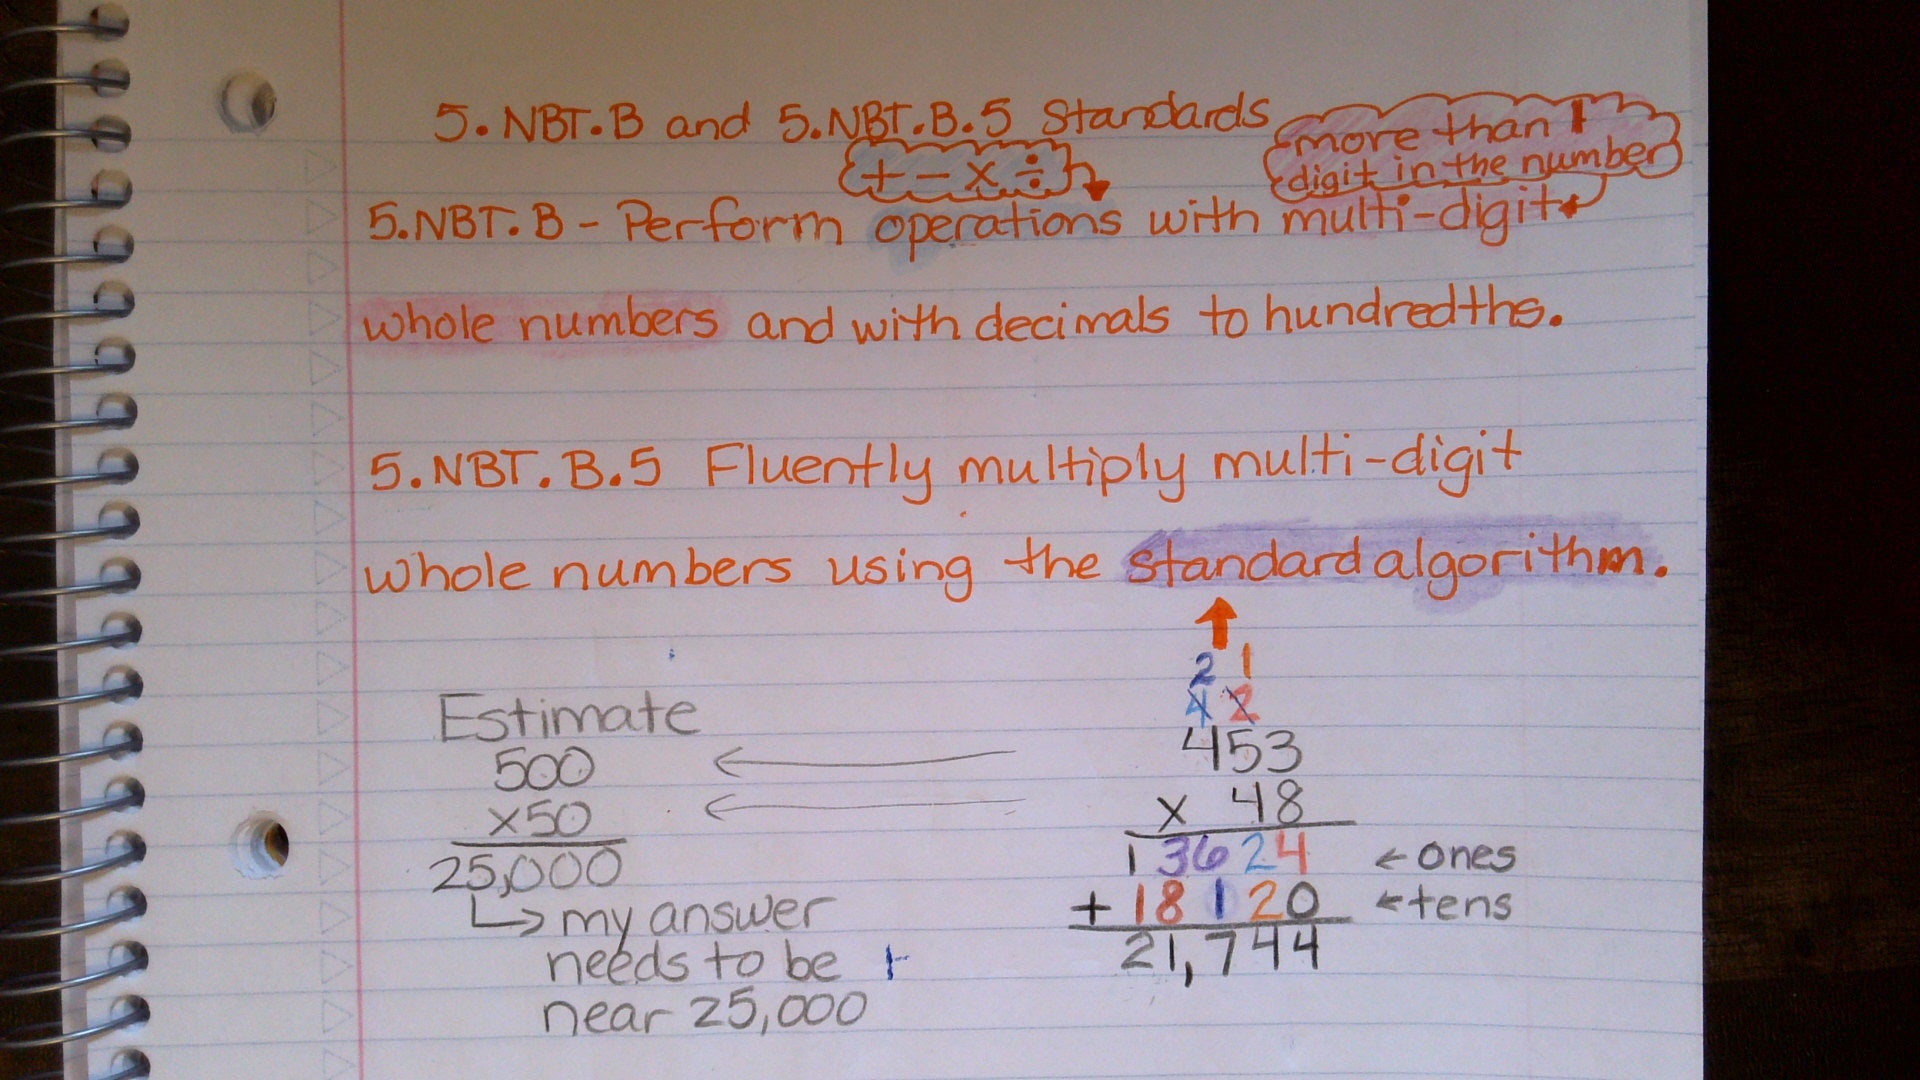 5.NBT.B and 5.NBT.B.5 Standards
more than 1
digit in the number
+ - x ÷
5.NBT.B - Perform operations with multi-digit
whole numbers and with decimals to hundredths.
5.NBT.B.5 Fluently multiply multi-digit
whole numbers using the standard algorithm.
Estimate
500
x50
25,000
my answer
needs to be
near 25,000
2 1
4 2
453
x 48
1 3624 ← ones
+ 18 120 ← tens
21,744